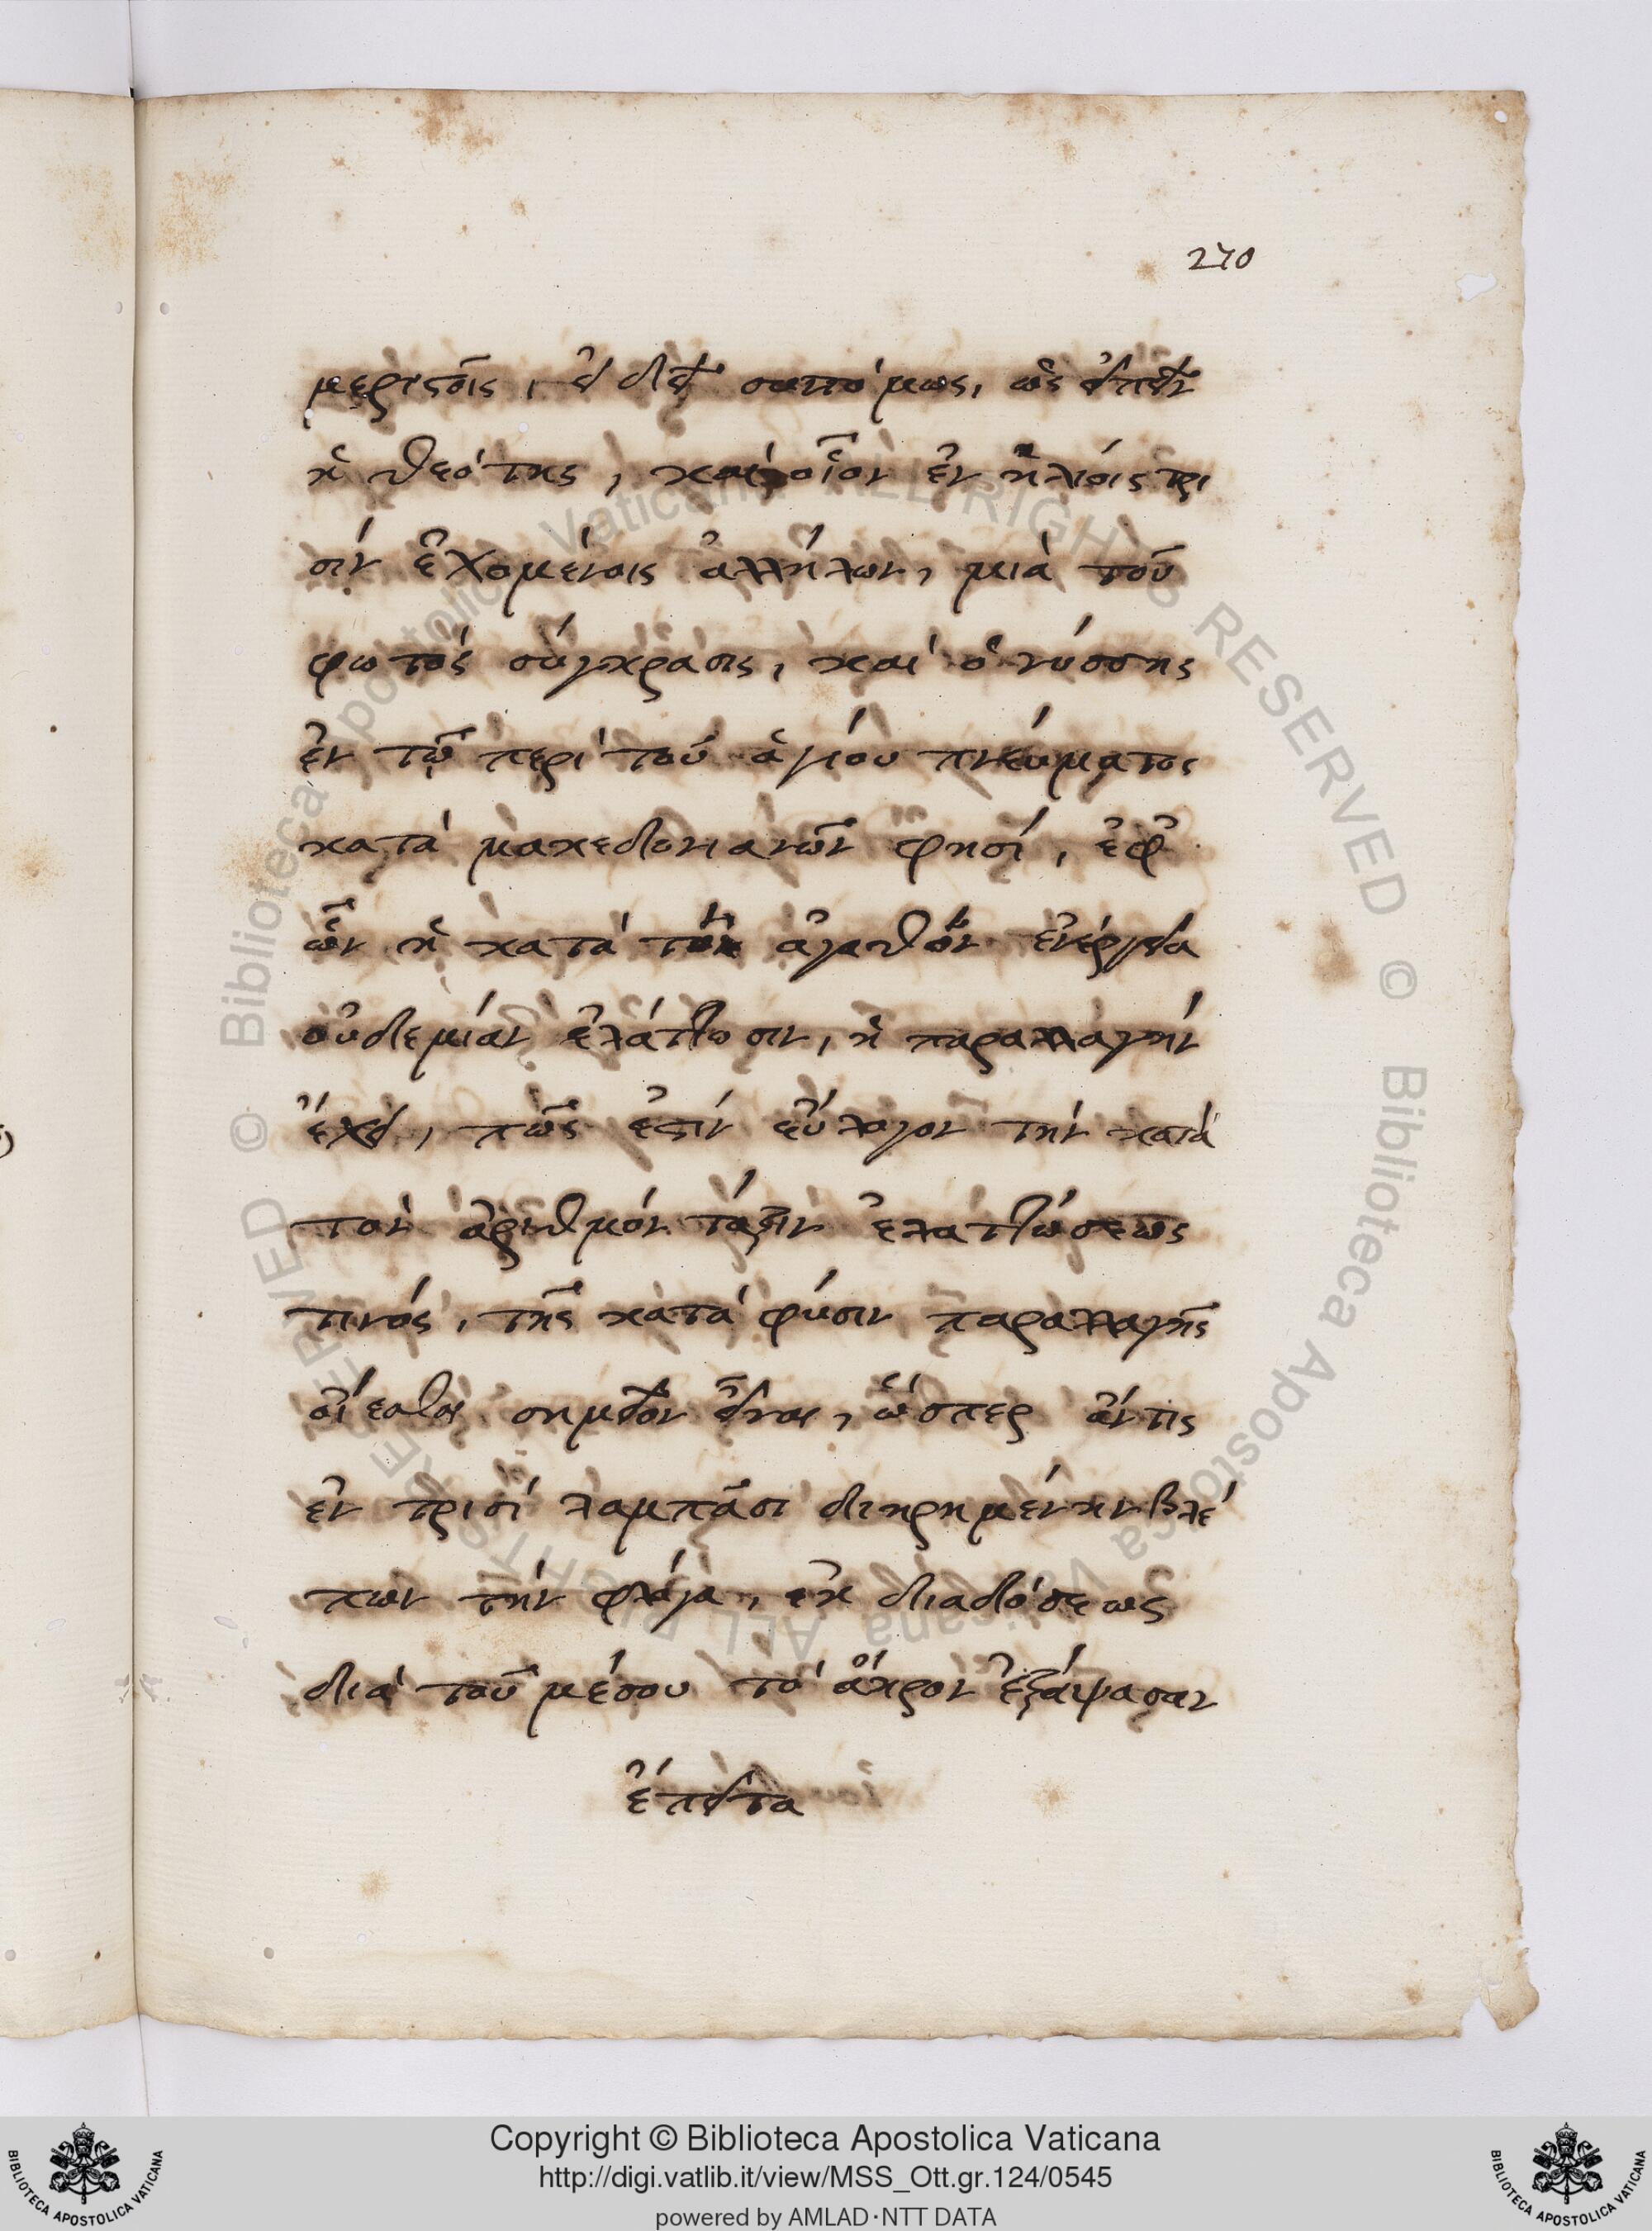 270
μεριστοῖς, εἰ δεῖ συντόμως, ὡς εἰπεῖν
ἡ θεότης, καὶ οἷον ἐν ἡλίοις τρι
σὶν ἐχομένοις ἀλλήλων, μία τοῦ
φωτὸς σύγκρασις, καὶ ὁ νύσσης
ἐν τῷ περὶ τοῦ ἁγίου πνεύματος
κατὰ μακεδονιανῶν φησί, ἐφ'
ὧν ἡ κατὰ τὸ ἀγαθὸν ἐνέργεια
οὐδεμίαν ἐλάττωσιν, ἢ παραλλαγὴν
ἔχει, πῶς ἐστὶν εὔλογον τὴν κατὰ
τὸν ἀριθμὸν τάξιν ἐλαττώσεως
τινὸς, τῆς κατὰ φύσιν παραλλαγῆς
οἴεσθαι σημεῖον εἶναι, ὥσπερ ἄν τις
ἐν τρισὶ λαμπᾶσι διηρημένην βλέ
πων τὴν φλόγα, ἐκ διαδόσεως
διὰ τοῦ μέσου τὸ ἄκρον ἐξάψασαν
ἔπειτα
Biblioteca Apostolica Vaticana ALL RIGHTS RESERVED ©
Copyright © Biblioteca Apostolica Vaticana
http://digi.vatlib.it/view/MSS_Ott.gr.124/0545
powered by AMLAD·NTT DATA
BIBLIOTECA APOSTOLICA VATICANA
BIBLIOTECA APOSTOLICA VATICANA